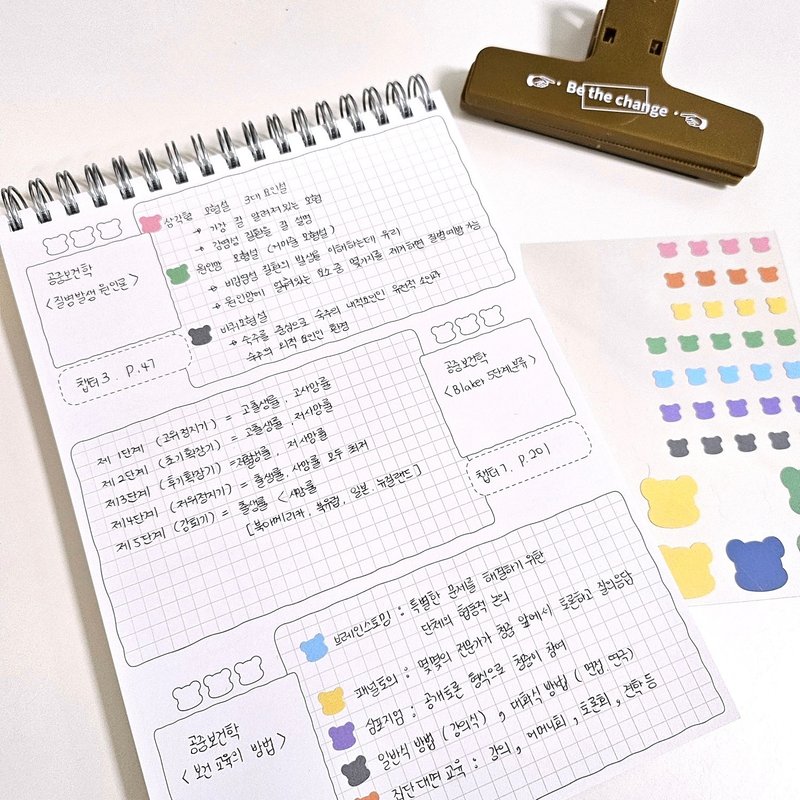 Be the change
공중보건학
<질병발생 원인론>
챕터 3. P.47
삼각형 모형설 3대 요인설
→ 가장 잘 알려져 있는 모형
→ 감염성 질환을 잘 설명
원인망 모형설 (거미줄 모형설)
→ 비감염성 질환의 발생을 이해하는데 유리
→ 원인망에 얽혀있는 요소 중 몇가지를 제거하면 질병예방 가능
바퀴모형설
→ 숙주를 중심으로 숙주의 내적요인인 유전적 소인과
숙주의 외적 요인인 환경
공중보건학
<Blaker 5단계분류>
챕터 7. P.201
제 1단계 (고위정지기) = 고출생률, 고사망률
제 2단계 (초기확장기) = 고출생률, 저사망률
제3단계 (후기확장기) = 저출생률, 저사망률
제4단계 (저위정지기) = 출생률, 사망률 모두 최저
제5단계 (감퇴기) = 출생률 < 사망률
[북아메리카, 북유럽, 일본, 뉴질랜드]
공중보건학
<보건 교육의 방법>
브레인스토밍 : 특별한 문제를 해결하기 위한
단체의 협동적 논의
패널토의 : 몇몇의 전문가가 청중 앞에서 토론하고 질의응답
심포지엄 : 공개토론 형식으로 청중이 참여
일반식 방법 (강의식), 대화식 방법 (면접 연극)
집단 대면 교육 : 강의, 어머니회, 토론회, 견학 등